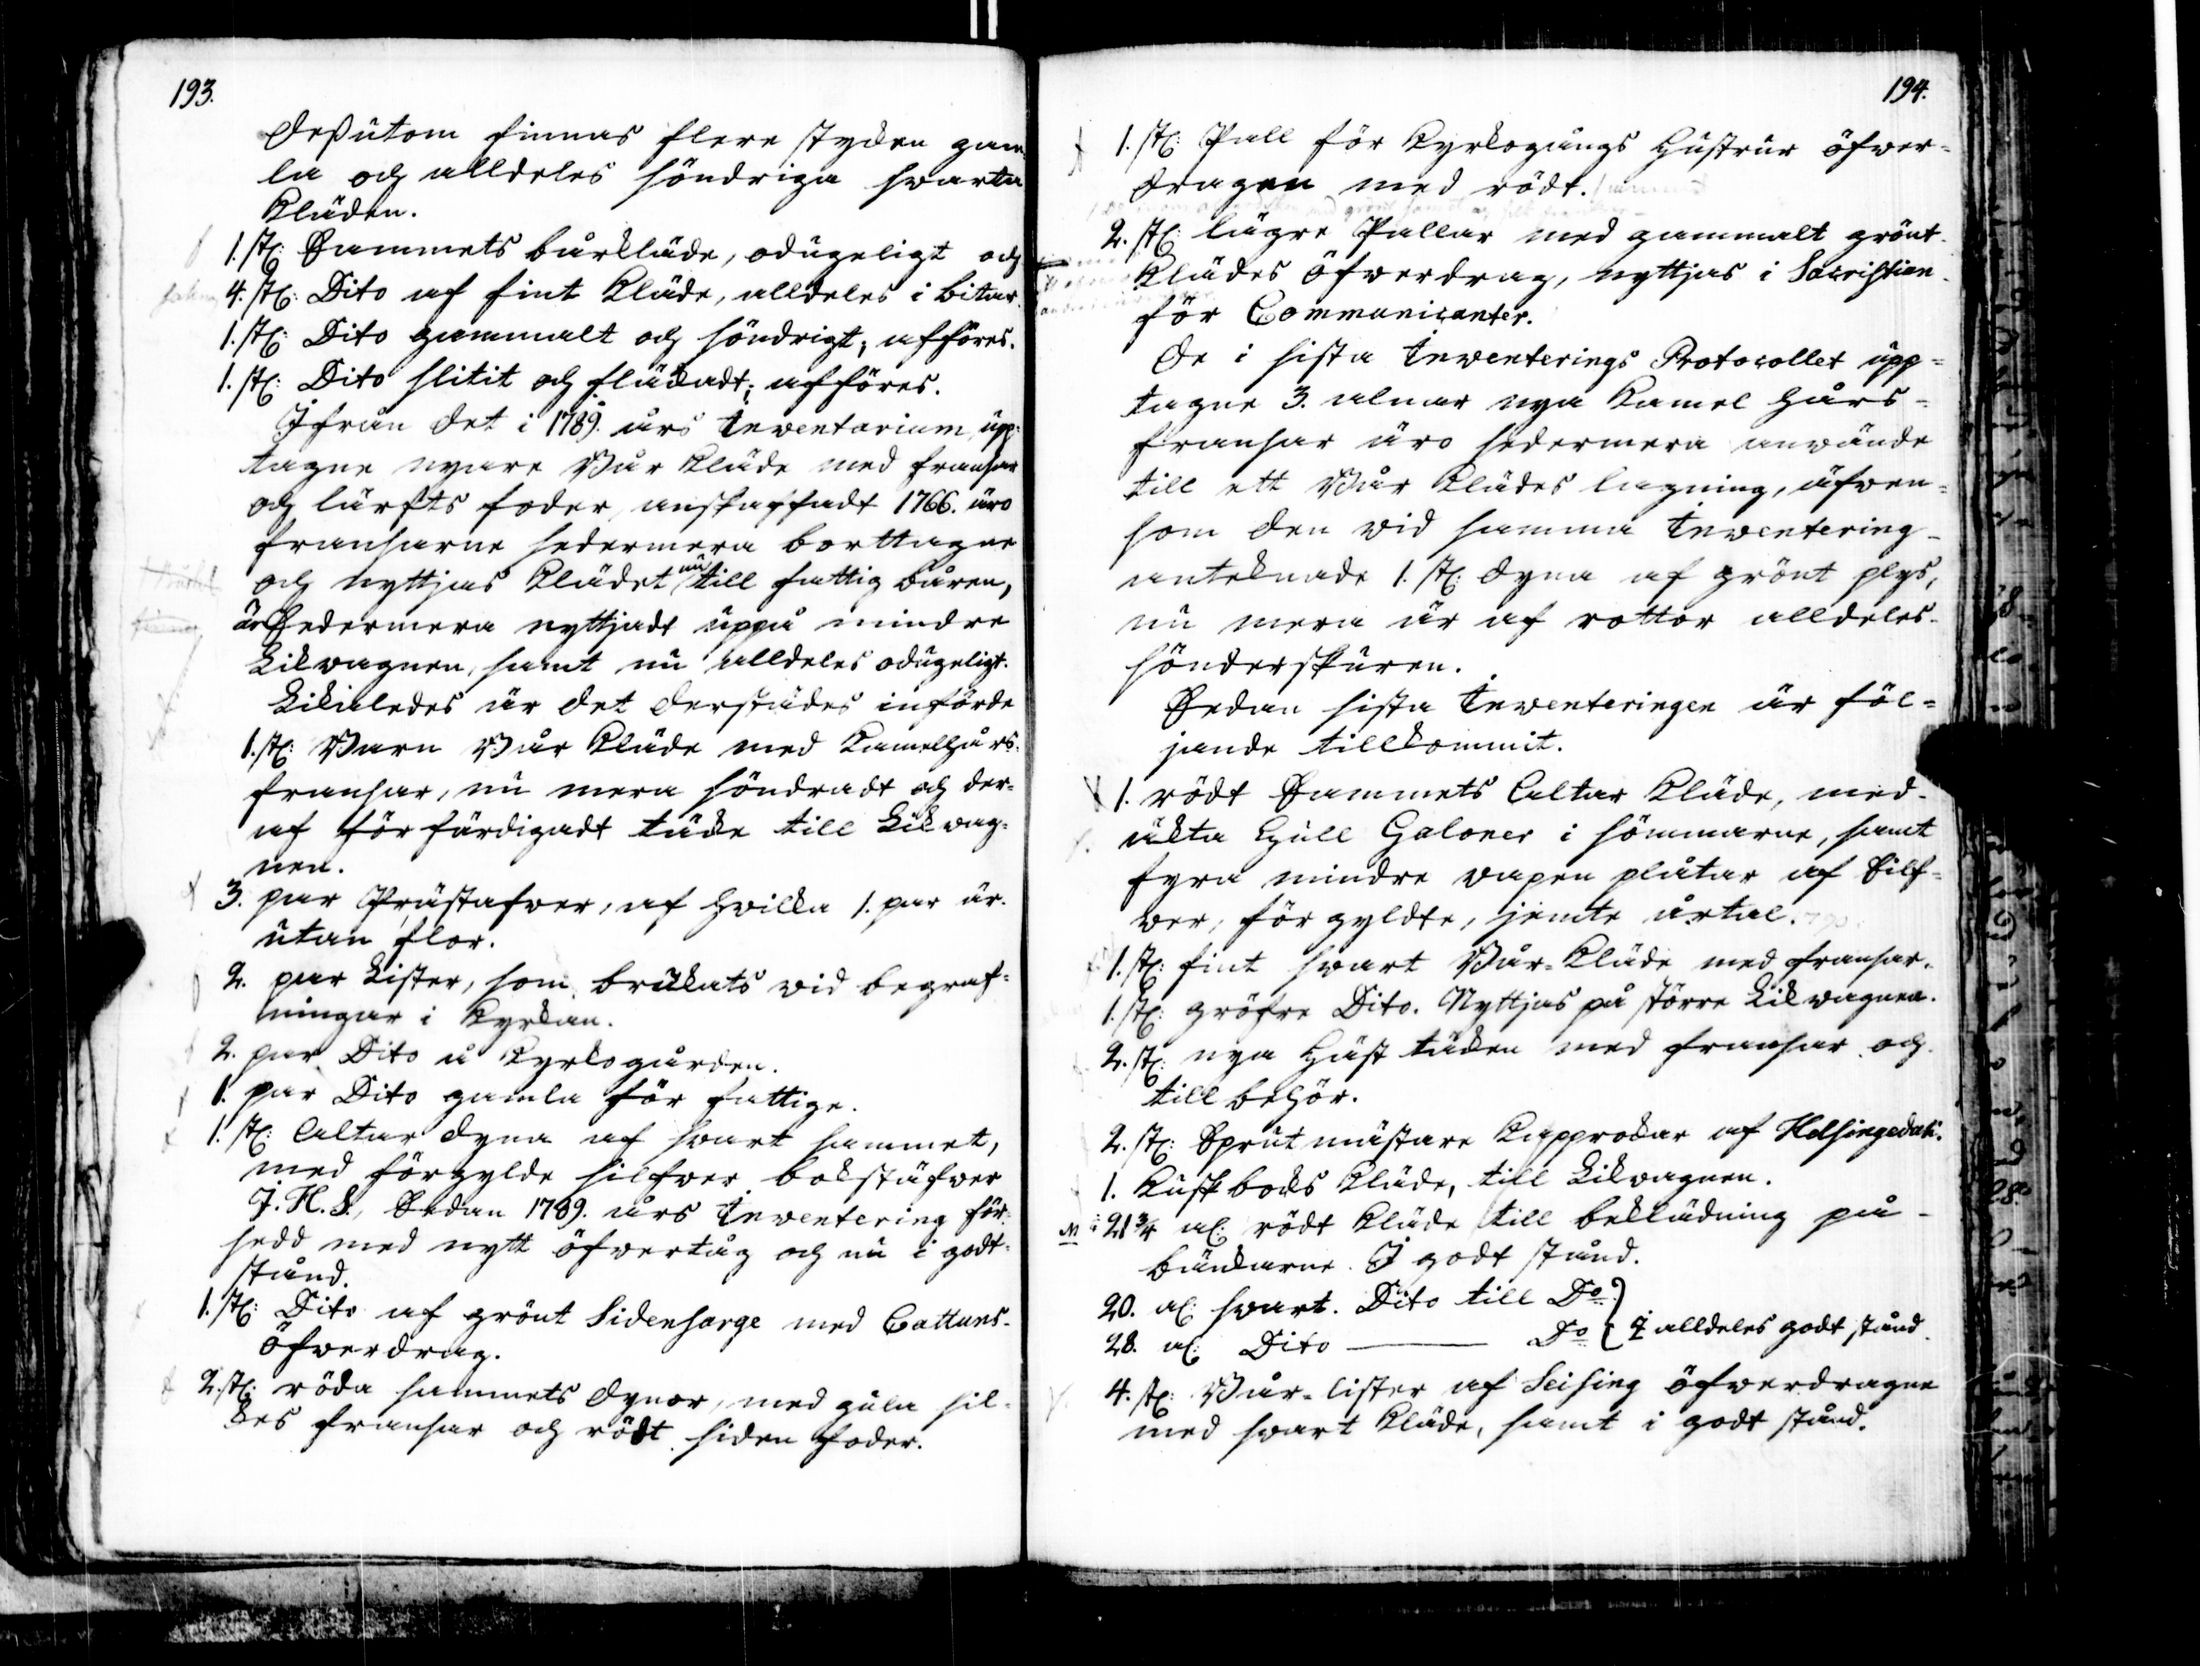 193.
Dessutom finnas flere stycken gam-
la och alldeles söndriga svarta
Kläden.
1. st: Sammets bårkläde, odugeligt och
4. st: Dito af fint Kläde, alldeles i bitar.
1. st: Dito gammalt och söndrigt; afföres.
1. st: Dito slitit och fläckadt; afföres.
Ifrån det i 1789. års Inventarium upp-
tagne nyare Bår Kläde med fransar
och lärfts foder, anskaffadt 1766. äro
fransarne sedermera borttagne
och nyttjas Klädet nu till fattig båren,
är Sedermera nyttjadt uppå mindre
Likvagnen, samt nu alldeles odugeligt.
Likaledes är det derstädes införde
1. st: Barn Bår Kläde med Kamelhårs-
fransar, nu mera söndradt och der-
af förfärdigadt täcke till Likvag-
nen.
3. par Prästafver, af hvilka 1. par är
utan flor.
2. par Lister, som brukats vid begraf-
ningar i Kyrkan.
2. par Dito å Kyrkogården.
1. par Dito gamla för fattige.
1. st: Altar dyna af svart sammet,
med förgylde silfver bokstäfver
J. H. S., Sedan 1789. års Inventering för-
sedd med nytt öfvertåg och nu i godt
stånd.
1. st: Dito af grönt Sidensarge med Cattuns-
Öfverdrag.
2. st: röda sammets dynor, med gula sil-
kes fransar och rödt siden foder.
194.
1. st: Pall för Kyrkogångs Hustrur öfver-
dragen med rödt.
2. st: lägre Pallar med gammalt grönt
Klädes öfverdrag, nyttjas i Sacristian
för Communicanter.
De i sista Inventerings Protocollet upp-
tagne 3. alnar nya Kamel hårs-
fransar äro sedermera använde
till ett Bår Klädes lagning, äfven-
som den vid samma Inventering
anteknade 1. st: dyna af grönt plys,
nu mera är af rottor alldeles
sönderskuren.
Sedan sista Inventeringen är föl-
jande tillkommit.
1. rödt Sammets Altar Kläde, med
äkta Gull Galoner i sömmarne, samt
fyra mindre vapen plåtar af Silf-
ver, förgyldte, jemte årtal.
1. st: fint svart Bår-Kläde med fransar.
1. st: gröfre Dito. Nyttjas på större Likvagnen.
2. st: nya Häst täcken med fransar och
tillbehör.
2. st: Sprutmästare Kapprockar af
1. Kuskbocks Kläde, till Likvagnen.
21 3/4 al: rödt Kläde till beklädning på
bänkarne. I godt stånd.
20. al: svart. Dito till Do
28. al: Dito ——— Do } I alldeles godt stånd.
4. st: Bår-lister af Seising öfverdragne
med svart Kläde, samt i godt stånd.